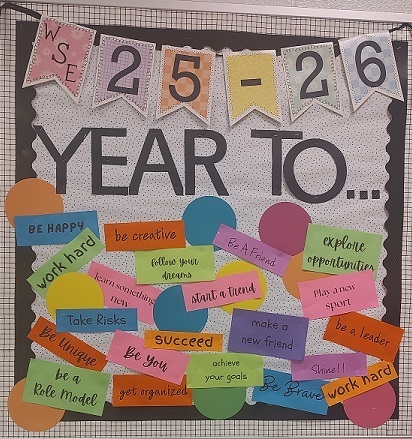 WSE 25-26
YEAR TO...
BE HAPPY
be creative
work hard
follow your
dreams
Be A Friend
explore
opportunities
learn something
new
start a trend
Play a new
sport
Take Risks
SUCCEED
make a
new friend
be a leader
Be Unique
Be You
achieve
your goals
Shine!!
be a
Role Model
get organized
Be Brave
work hard